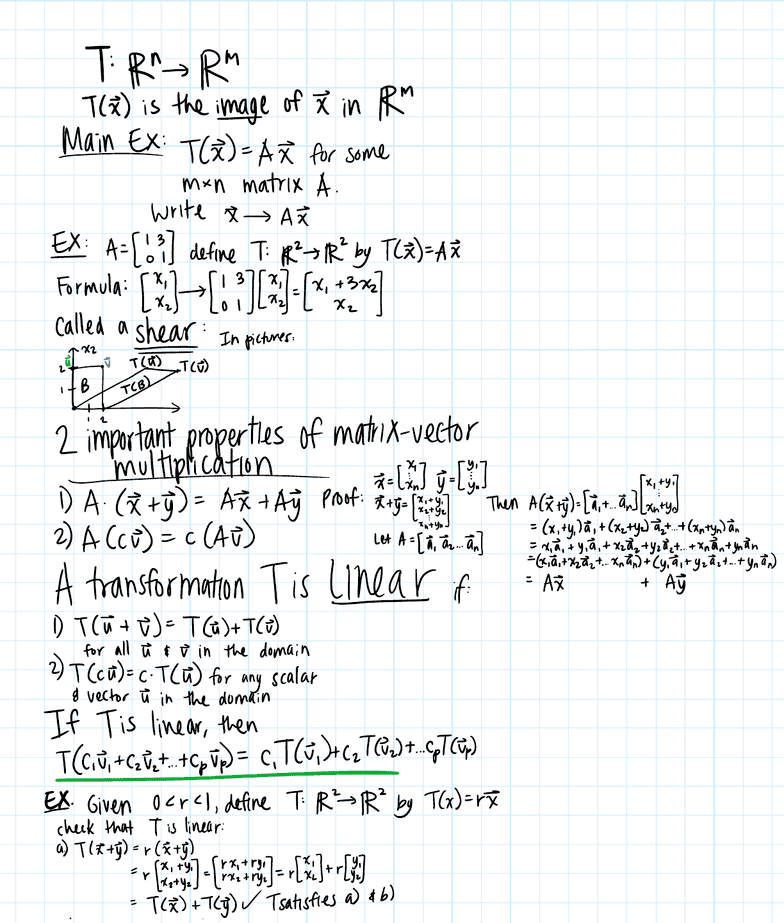 T: ℝⁿ → ℝᵐ
T(x⃗) is the image of x⃗ in ℝᵐ
Main Ex: T(x⃗) = A x⃗ for some
m×n matrix A.
Write x⃗ → A x⃗
EX: A = [1 3; 0 1] define T: ℝ² → ℝ² by T(x⃗) = A x⃗
Formula: [x₁; x₂] → [1 3; 0 1] [x₁; x₂] = [x₁ + 3x₂; x₂]
Called a shear: In pictures.
u⃗ x₂ v⃗ T(u⃗) T(v⃗)
2
1 B T(B)
1 2
2 important properties of matrix-vector
multiplication
1) A · (x⃗ + y⃗) = A x⃗ + A y⃗
2) A (c v⃗) = c (A v⃗)
Proof: x⃗ = [x₁; ⋮; xₙ] y⃗ = [y₁; ⋮; yₙ]
x⃗ + y⃗ = [x₁ + y₁; x₂ + y₂; ⋮; xₙ + yₙ]
Let A = [a⃗₁ a⃗₂ ... a⃗ₙ]
Then A(x⃗ + y⃗) = [a⃗₁ + ... a⃗ₙ] [x₁ + y₁; ⋮; xₙ + yₙ]
= (x₁ + y₁) a⃗₁ + (x₂ + y₂) a⃗₂ + ... + (xₙ + yₙ) a⃗ₙ
= x₁a⃗₁ + y₁a⃗₁ + x₂a⃗₂ + y₂a⃗₂ + ... + xₙa⃗ₙ + yₙa⃗ₙ
= (x₁a⃗₁ + x₂a⃗₂ + ... xₙa⃗ₙ) + (y₁a⃗₁ + y₂a⃗₂ + ... + yₙa⃗ₙ)
= A x⃗ + A y⃗
A transformation T is Linear if:
1) T(u⃗ + v⃗) = T(u⃗) + T(v⃗)
for all u⃗ & v⃗ in the domain
2) T(c u⃗) = c · T(u⃗) for any scalar
& vector u⃗ in the domain
If T is linear, then
T(c₁v⃗₁ + c₂v⃗₂ + ... + cₚv⃗ₚ) = c₁T(v⃗₁) + c₂T(v⃗₂) + ... cₚT(v⃗ₚ)
EX. Given 0 < r < 1, define T: ℝ² → ℝ² by T(x) = r x⃗
check that T is linear:
a) T(x⃗ + y⃗) = r (x⃗ + y⃗)
= r [x₁ + y₁; x₂ + y₂] = [rx₁ + ry₁; rx₂ + ry₂] = r [x₁; x₂] + r [y₁; y₂]
= T(x⃗) + T(y⃗) ✓ T satisfies a) & b)